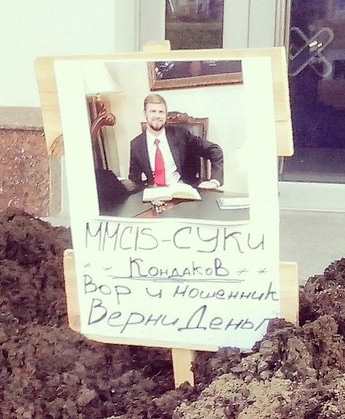 MMCIS-СУКИ
Кондаков
Вор и мошенник
Верни Деньг